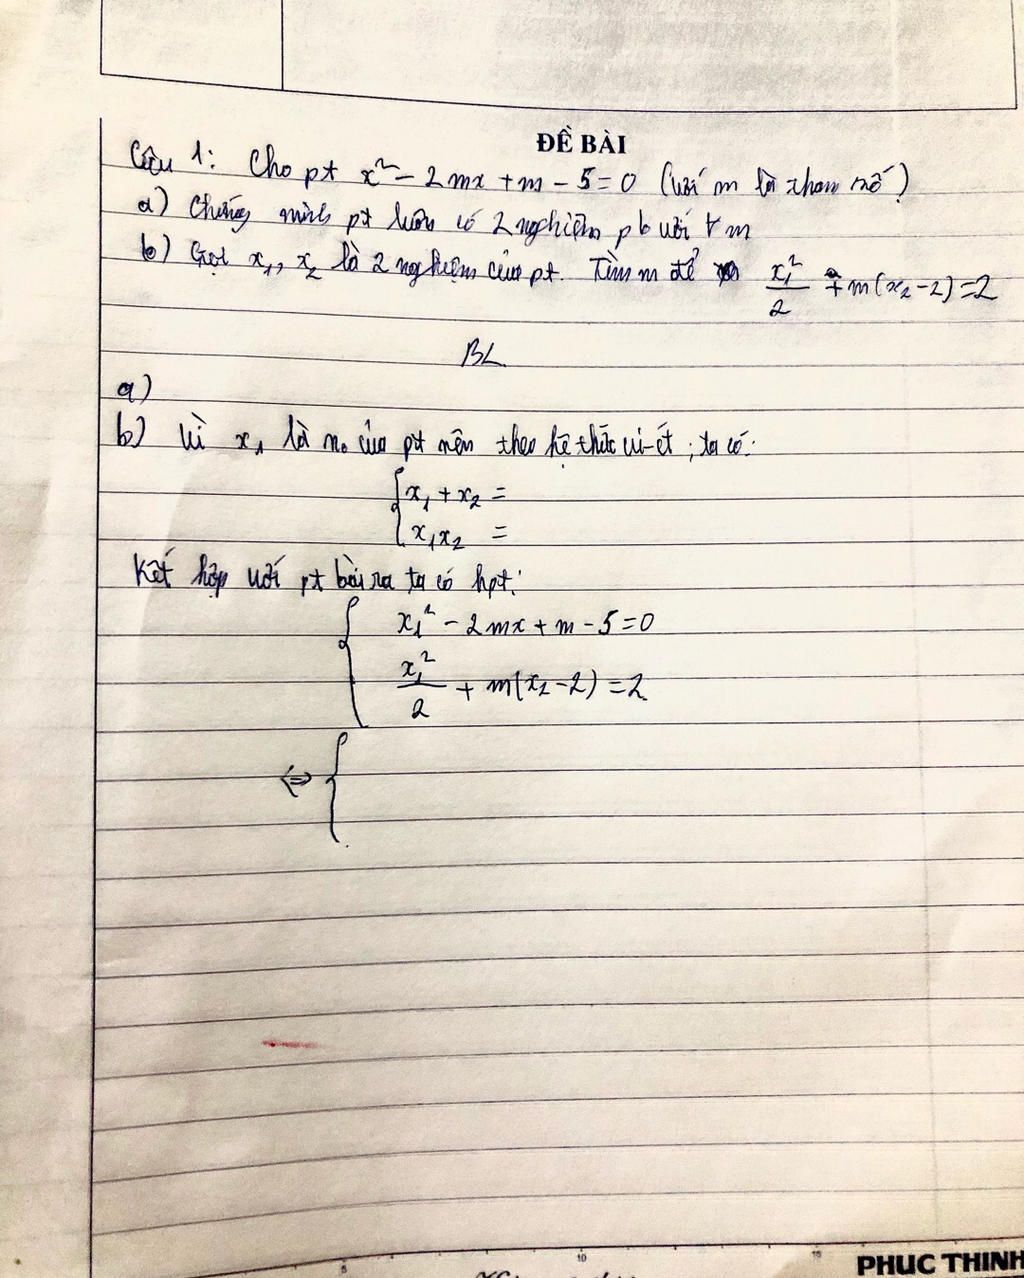 ĐỀ BÀI
Câu 1: Cho pt x² - 2mx + m - 5 = 0 (với m là tham số)
a) Chứng minh pt luôn có 2 nghiệm pb với ∀ m
b) Gọi x₁, x₂ là 2 nghiệm của pt. Tìm m để x₁²/2 + m(x₂ - 2) = 2
BL
a)
b) Vì x₁ là no của pt nên theo hệ thức vi-ét; ta có:
{ x₁ + x₂ =
x₁x₂ =
Kết hợp với pt bài ra ta có hpt:
{ x₁² - 2mx + m - 5 = 0
x₁²/2 + m(x₂ - 2) = 2
⇔ {
5 10 15
PHUC THINH